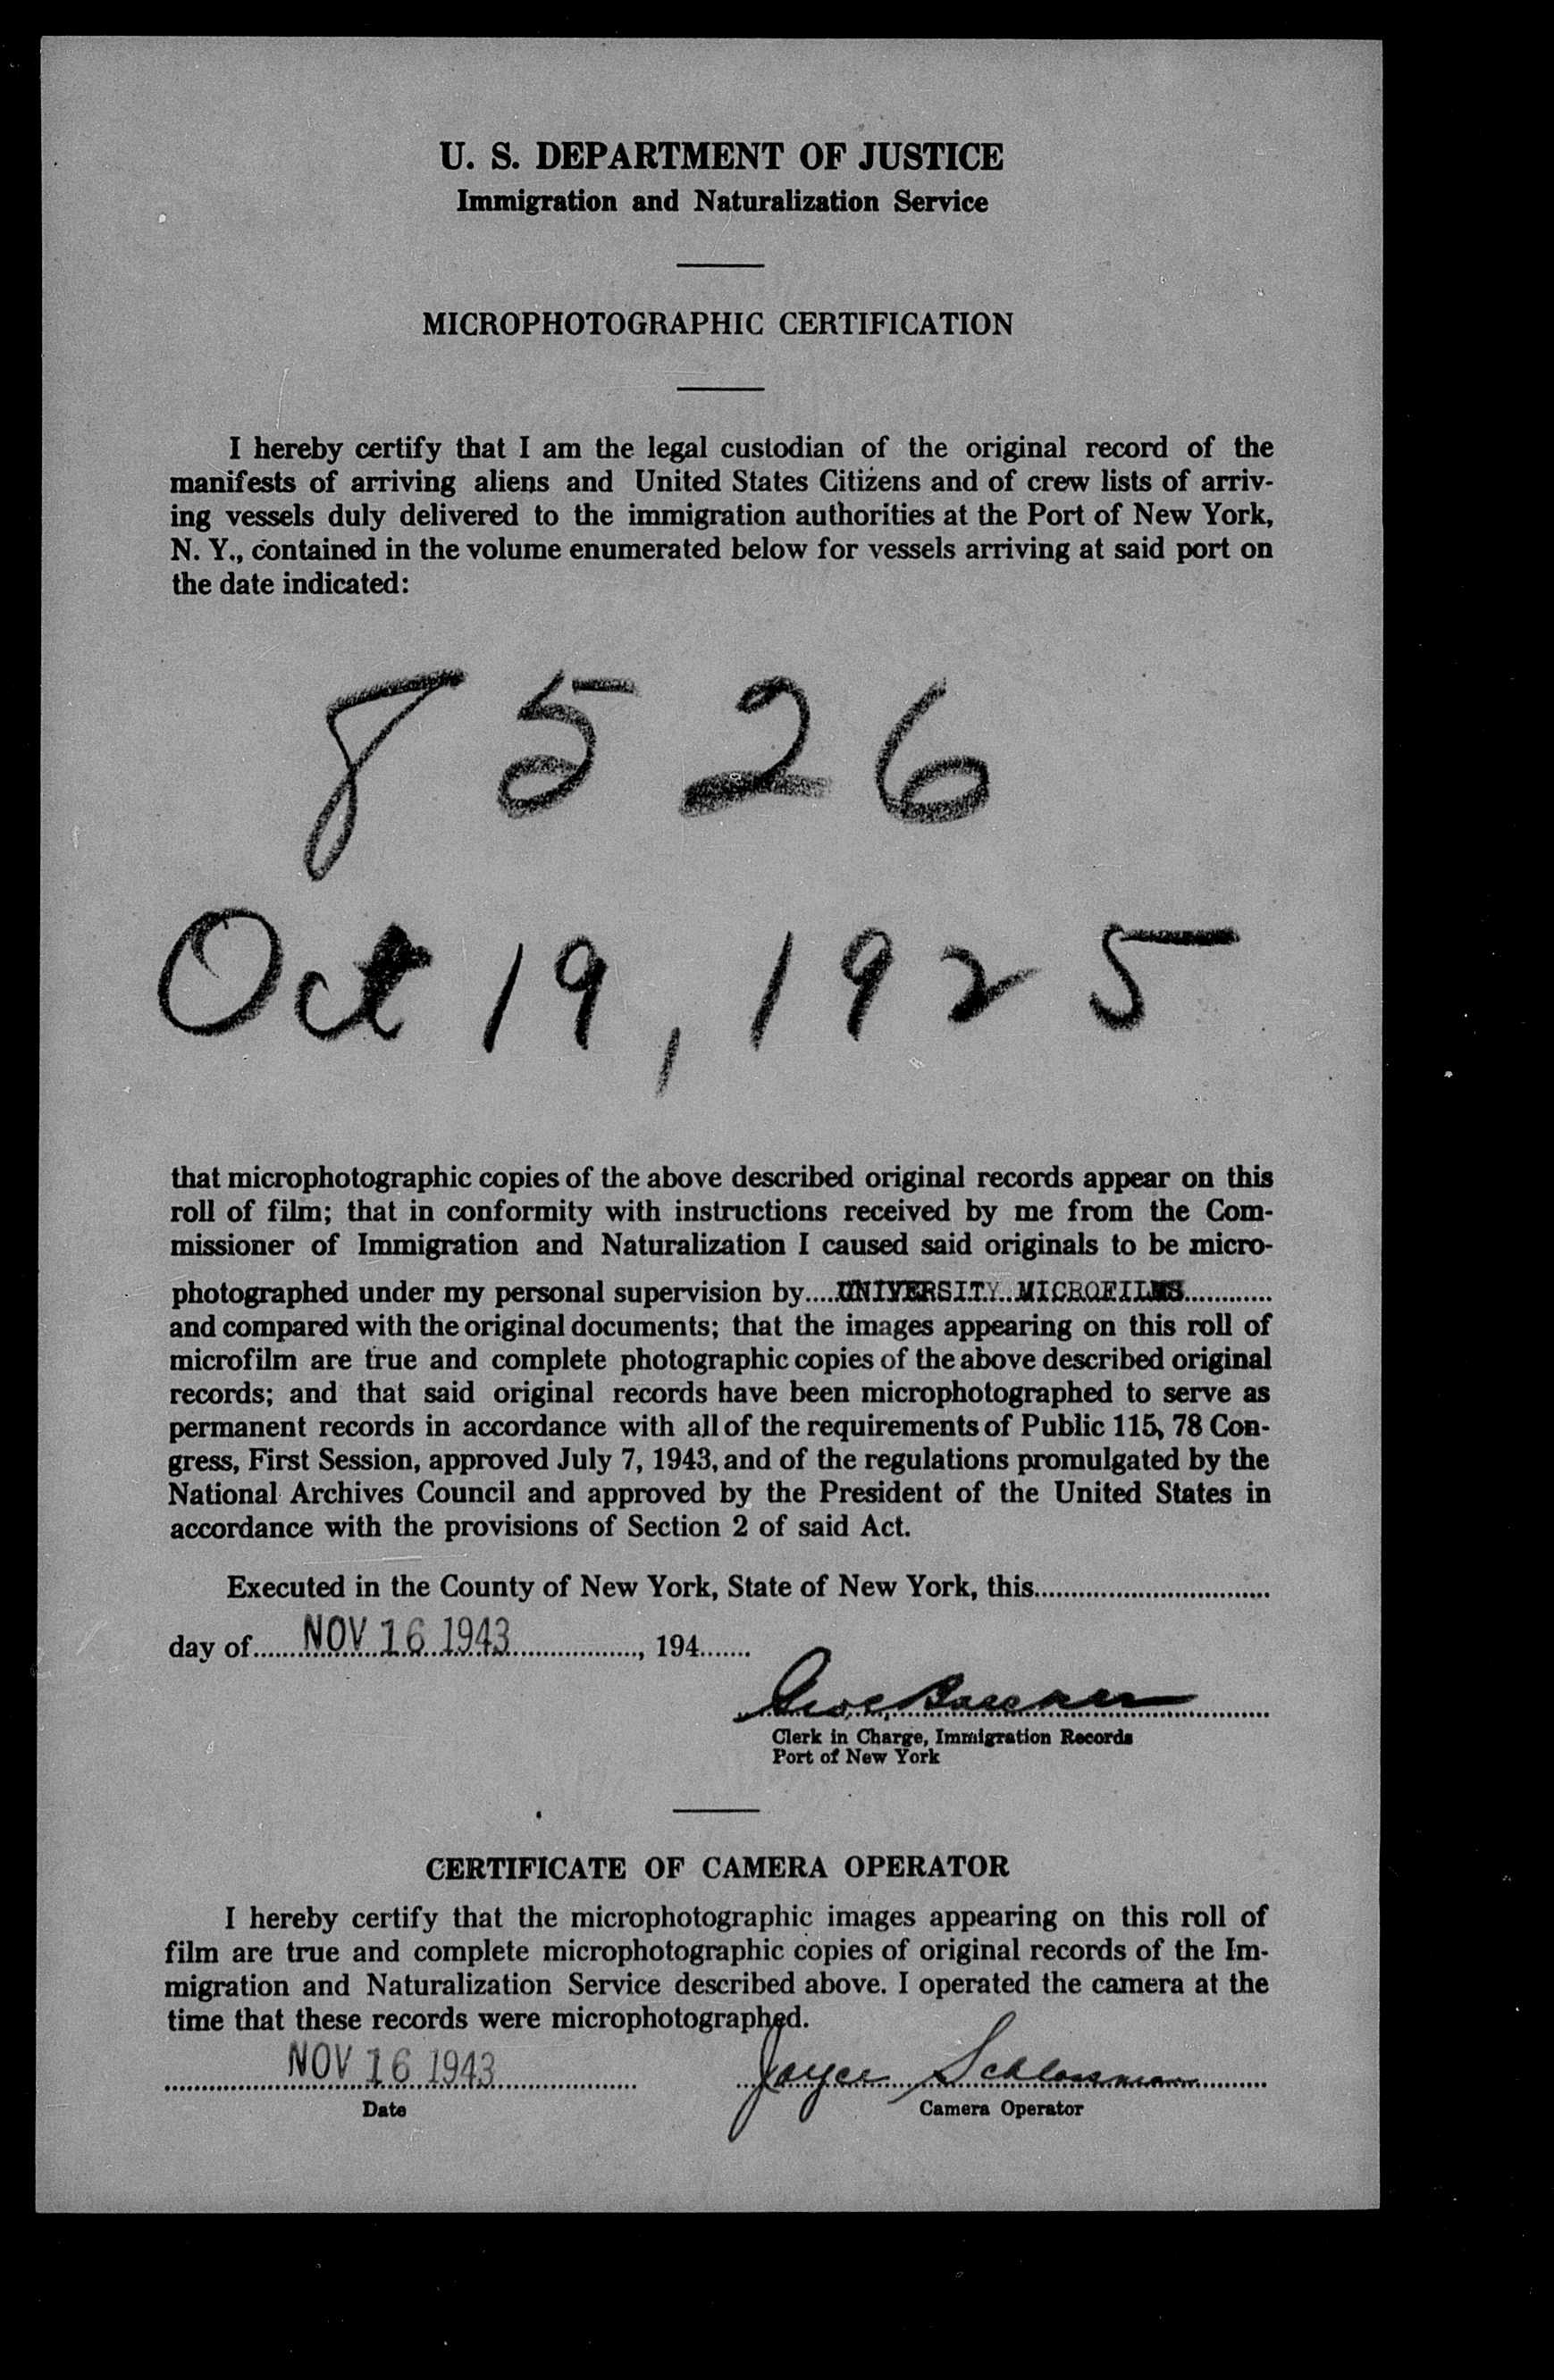 U. S. DEPARTMENT OF JUSTICE
Immigration and Naturalization Service
MICROPHOTOGRAPHIC CERTIFICATION
I hereby certify that I am the legal custodian of the original record of the
manifests of arriving aliens and United States Citizens and of crew lists of arriv-
ing vessels duly delivered to the immigration authorities at the Port of New York,
N. Y., contained in the volume enumerated below for vessels arriving at said port on
the date indicated:
8526
Oct 19, 1925
that microphotographic copies of the above described original records appear on this
roll of film; that in conformity with instructions received by me from the Com-
missioner of Immigration and Naturalization I caused said originals to be micro-
photographed under my personal supervision by.....UNIVERSITY MICROFILMS............
and compared with the original documents; that the images appearing on this roll of
microfilm are true and complete photographic copies of the above described original
records; and that said original records have been microphotographed to serve as
permanent records in accordance with all of the requirements of Public 115, 78 Con-
gress, First Session, approved July 7, 1943, and of the regulations promulgated by the
National Archives Council and approved by the President of the United States in
accordance with the provisions of Section 2 of said Act.
Executed in the County of New York, State of New York, this................................
day of......NOV 16 1943................., 194.......
Clerk in Charge, Immigration Records
Port of New York
CERTIFICATE OF CAMERA OPERATOR
I hereby certify that the microphotographic images appearing on this roll of
film are true and complete microphotographic copies of original records of the Im-
migration and Naturalization Service described above. I operated the camera at the
time that these records were microphotographed.
NOV 16 1943 Joyce Schlossman
Date Camera Operator